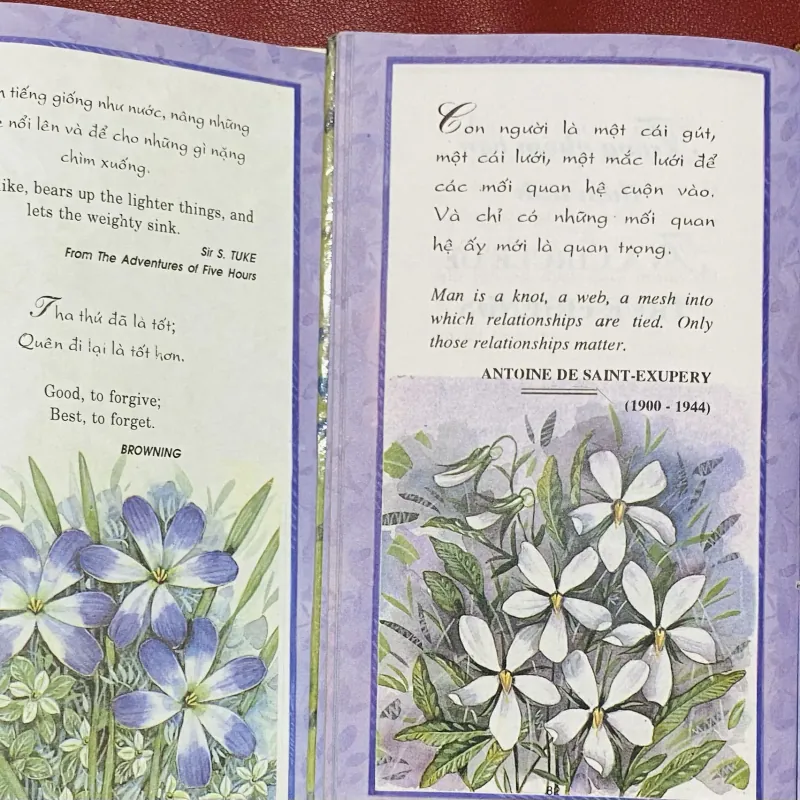 tiếng giống như nước, nâng những
nổi lên và để cho những gì nặng
chìm xuống.
bears up the lighter things, and
lets the weighty sink.
Sir S. TUKE
From The Adventures of Five Hours
Tha thứ đã là tốt;
Quên đi lại là tốt hơn.
Good, to forgive;
Best, to forget.
BROWNING
Con người là một cái gút,
một cái lưới, một mắc lưới để
các mối quan hệ cuộn vào.
Và chỉ có những mối quan
hệ ấy mới là quan trọng.
Man is a knot, a web, a mesh into
which relationships are tied. Only
those relationships matter.
ANTOINE DE SAINT-EXUPERY
(1900 - 1944)